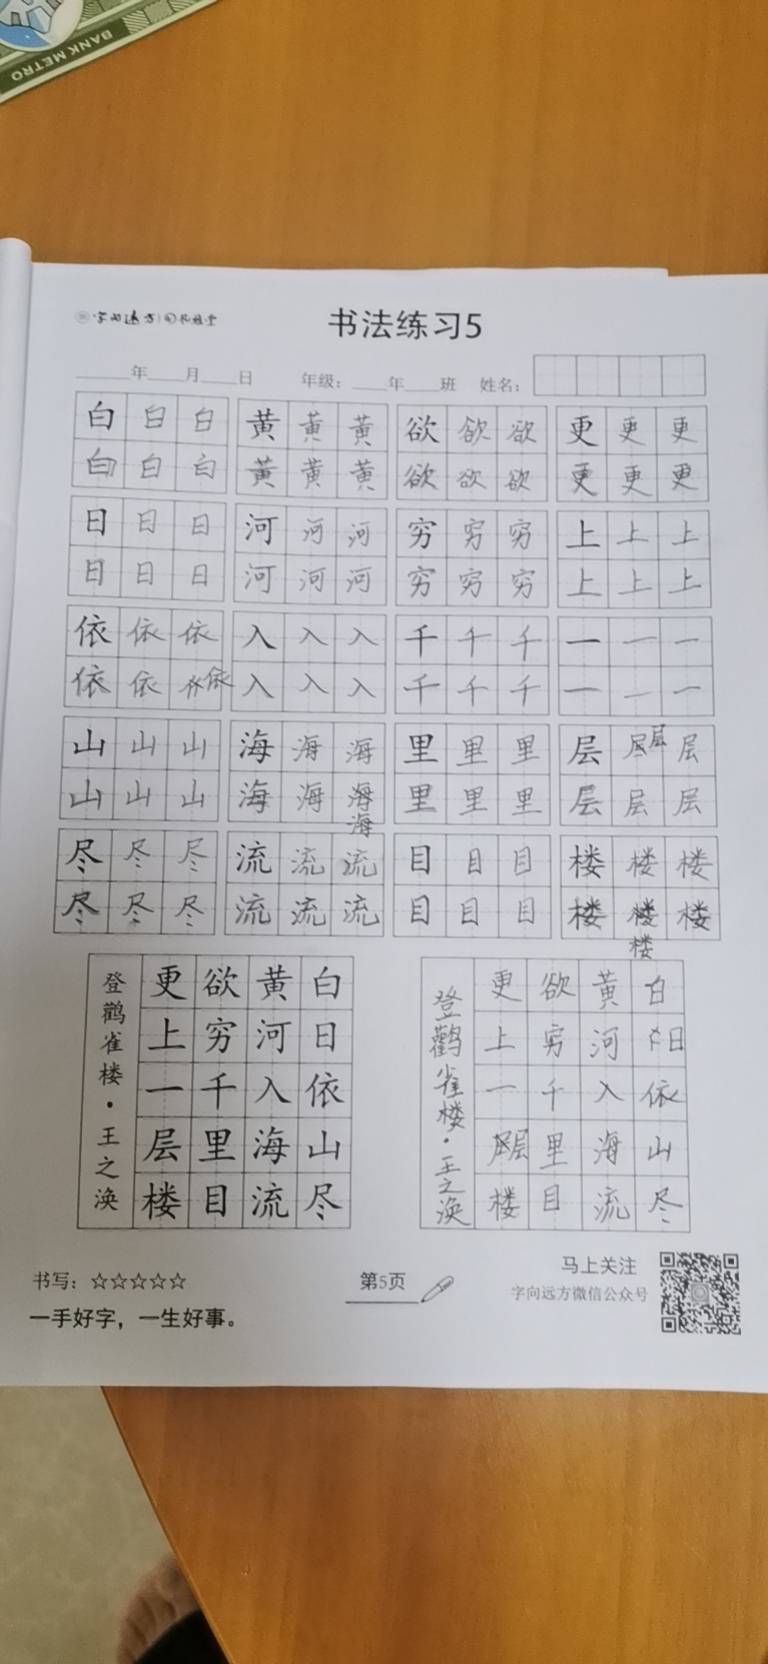 BANK METRO
字向远方
书法练习5
____年____月____日 年级：____年____班 姓名：
白 白 白 黄 黄 黄 欲 欲 欲 更 更 更
白 白 白 黄 黄 黄 欲 欲 欲 更 更 更
日 日 日 河 河 河 穷 穷 穷 上 上 上
日 日 日 河 河 河 穷 穷 穷 上 上 上
依 依 依 入 入 入 千 千 千 一 一 一
依 依 依 入 入 入 千 千 千 一 一 一
山 山 山 海 海 海 里 里 里 层 层 层
山 山 山 海 海 海 里 里 里 层 层 层
海
尽 尽 尽 流 流 流 目 目 目 楼 楼 楼
尽 尽 尽 流 流 流 目 目 目 楼 楼 楼
楼
登鹳雀楼·王之涣
白日依山尽
黄河入海流
欲穷千里目
更上一层楼
登鹳雀楼·王之涣
白日依山尽
黄河入海流
欲穷千里目
更上一层楼
书写：☆☆☆☆☆
一手好字，一生好事。
第5页
马上关注
字向远方微信公众号